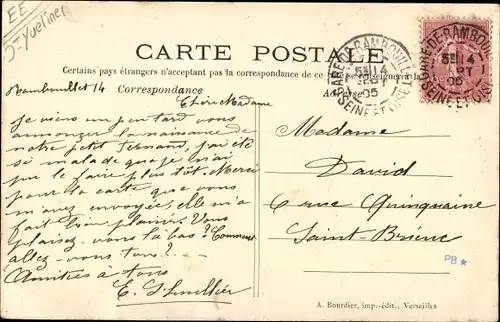 EE
D= Yvelines
CARTE POSTALE
Certains pays étrangers n'acceptant pas la correspondance de ce côté, se renseigner à la
Correspondance
Adresse
GARE-DE-RAMBOUILLET
5E 14
05
SEINE-ET-OISE
GARE-DE-RAMBOUILLET
5E 14
05
SEINE-ET-OISE
Rambouillet 14
Chère Madame
Je viens un peu tard vous
annoncer la naissance de
notre petit Fernand, j'ai été
si malade que je n'ai
pu le faire plus tôt. Merci
pour la carte que vous
m'avez envoyée, elle m'a
fait bien plaisir. Vous
plaisez-vous là bas? Comment
allez-vous tous?
Amitiés à tous
E.
Madame
David
6 rue Quinquaine
Saint-Brieuc
PB*
A. Bourdier, imp.-édit., Versailles